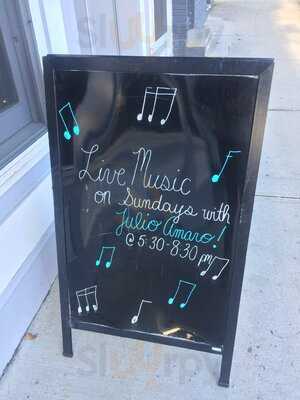 Live Music
on Sundays with
Julio Amaro!
@ 5:30-8:30 pm
Sluurpy